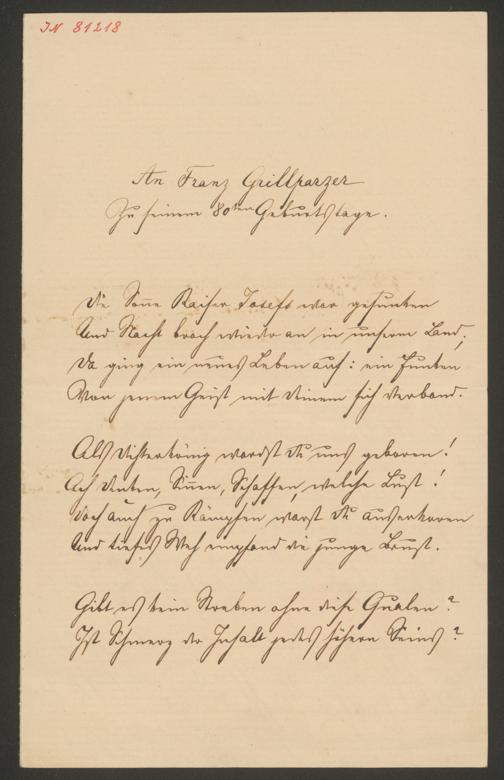 IN 81218
An Franz Grillparzer
Zu seinem 80ten Geburtstage.
Die Sonne Kaiser Josefs war gesunken
Und Nacht brach wieder an in unserm Land;
Da ging ein neues Leben auf: ein Funken
Von jenem Geist mit Deinem sich verband.
Als Dichterkönig wardst Du uns geboren!
Ach Denken, Sinnen, Schaffen, welche Lust!
Doch auch zu Kämpfen warst Du auserkoren
Und tiefes Weh empfand die junge Brust.
Gibt es kein Streben ohne diese Qualen?
Ist Schmerz der Inhalt jedes höhern Seins?